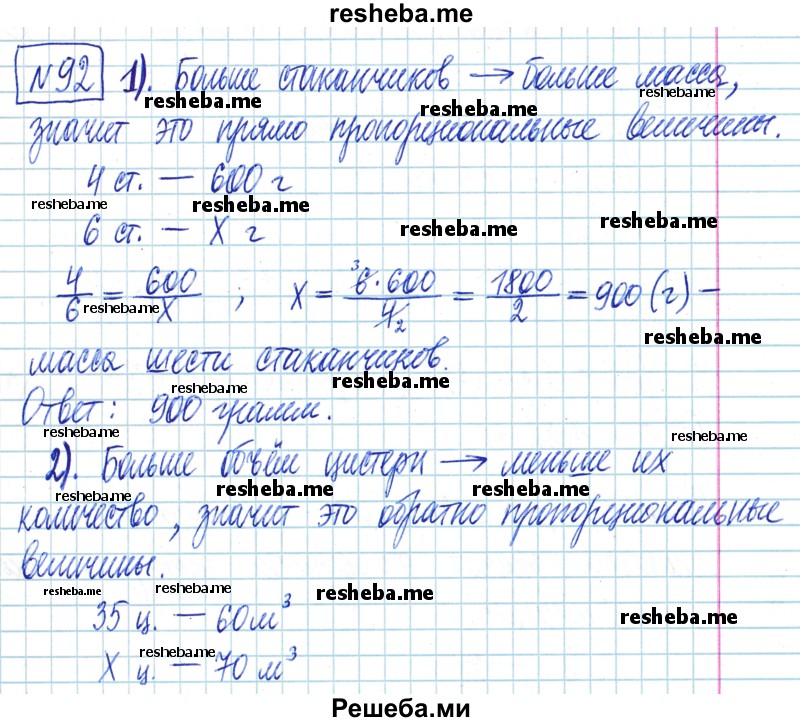 resheba.me
№92 1). Больше стаканчиков → больше масса,
resheba.me resheba.me resheba.me
значит это прямо пропорциональные величины.
4 ст. — 600 г
resheba.me resheba.me
6 ст. — X г
resheba.me resheba.me
4/6 = 600/X ; X = 6³·600/4₂ = 1800/2 = 900 (г) —
resheba.me resheba.me
масса шести стаканчиков.
resheba.me resheba.me
Ответ: 900 грамм.
resheba.me resheba.me
2). Больше объём цистерн → меньше их
resheba.me resheba.me resheba.me
количество, значит это обратно пропорциональные
величины.
resheba.me resheba.me resheba.me
35 ц. — 60 м³
resheba.me
X ц. — 70 м³
resheba.me
Решеба.ми